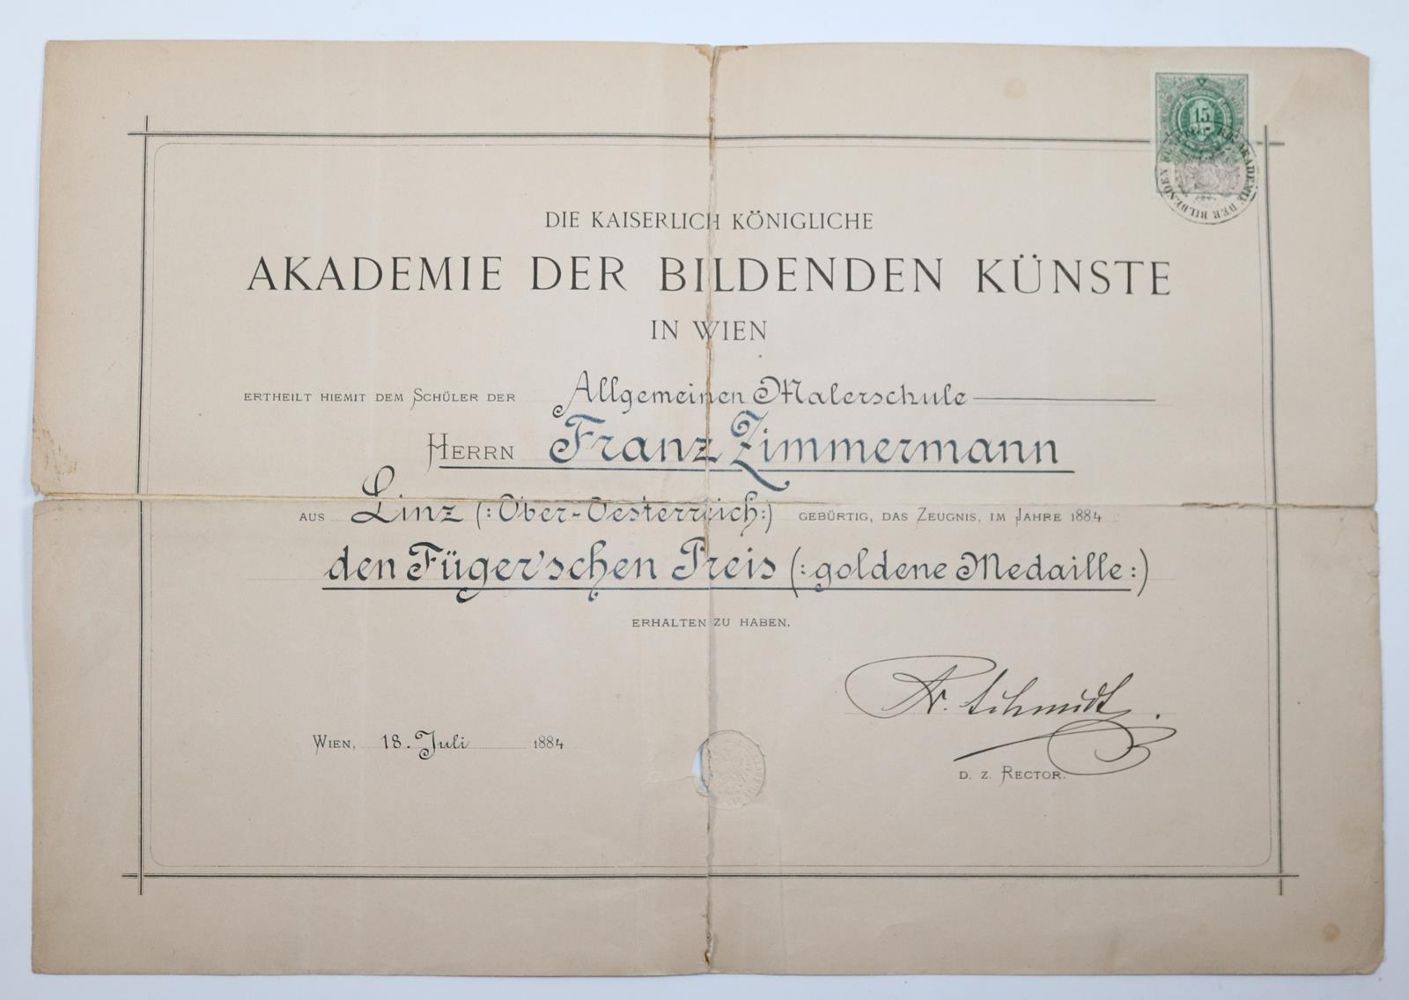 15
K. K. AKADEMIE DER BILDENDEN KÜNSTE
DIE KAISERLICH KÖNIGLICHE
AKADEMIE DER BILDENDEN KÜNSTE
IN WIEN
ERTHEILT HIEMIT DEM SCHÜLER DER Allgemeinen Malerschule
HERRN Franz Zimmermann
AUS Linz (: Ober-Oesterreich :) GEBÜRTIG, DAS ZEUGNIS, IM JAHRE 1884
den Füger'schen Preis (: goldene Medaille :)
ERHALTEN ZU HABEN.
Fr. Schmidt
WIEN, 18. Juli 1884
D. Z. RECTOR.